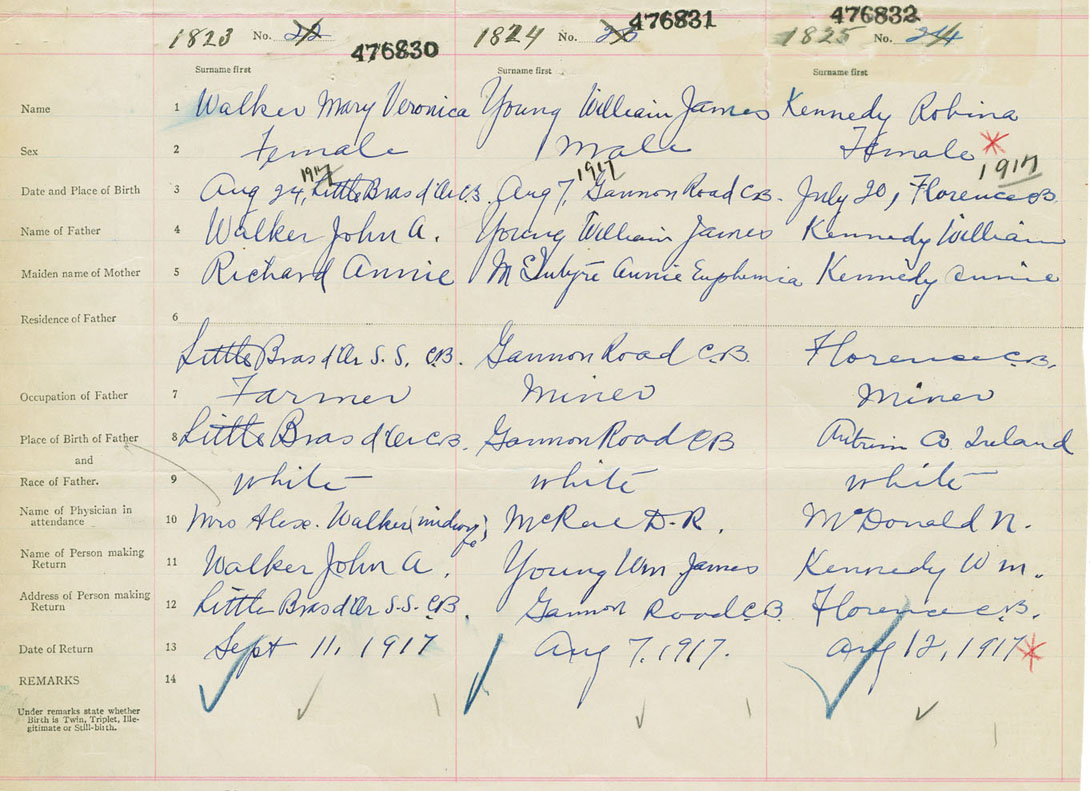 1823 No. 22 476830 1824 No. 23 476831 1825 No. 24 476832
Surname first Surname first Surname first
Name 1 Walker Mary Veronica Young William James Kennedy Robina
Sex 2 Female Male Female
Date and Place of Birth 3 Aug 24, 1917 Little Bras d'Or C.B. Aug 7, 1917 Gannon Road C.B. July 20, 1917 Florence C.B.
Name of Father 4 Walker John A. Young William James Kennedy William
Maiden name of Mother 5 Richard Annie McIntyre Annie Euphemia Kennedy Annie
Residence of Father 6
Little Bras d'Or S.S. C.B. Gannon Road C.B. Florence C.B.
Occupation of Father 7 Farmer Miner Miner
Place of Birth of Father 8 Little Bras d'Or C.B. Gannon Road C B Antrim Co. Ireland
and
Race of Father. 9 white white white
Name of Physician in
attendance 10 Mrs Alex. Walker (midwife) McRae D. R. McDonald N.
Name of Person making
Return 11 Walker John A. Young Wm James Kennedy Wm.
Address of Person making
Return 12 Little Bras d'Or S.S. C.B. Gannon Road C.B. Florence C.B.
Date of Return 13 Sept 11, 1917 Aug 7, 1917. Aug 12, 1917
REMARKS 14
Under remarks state whether
Birth is Twin, Triplet, Ille-
gitimate or Still-birth.